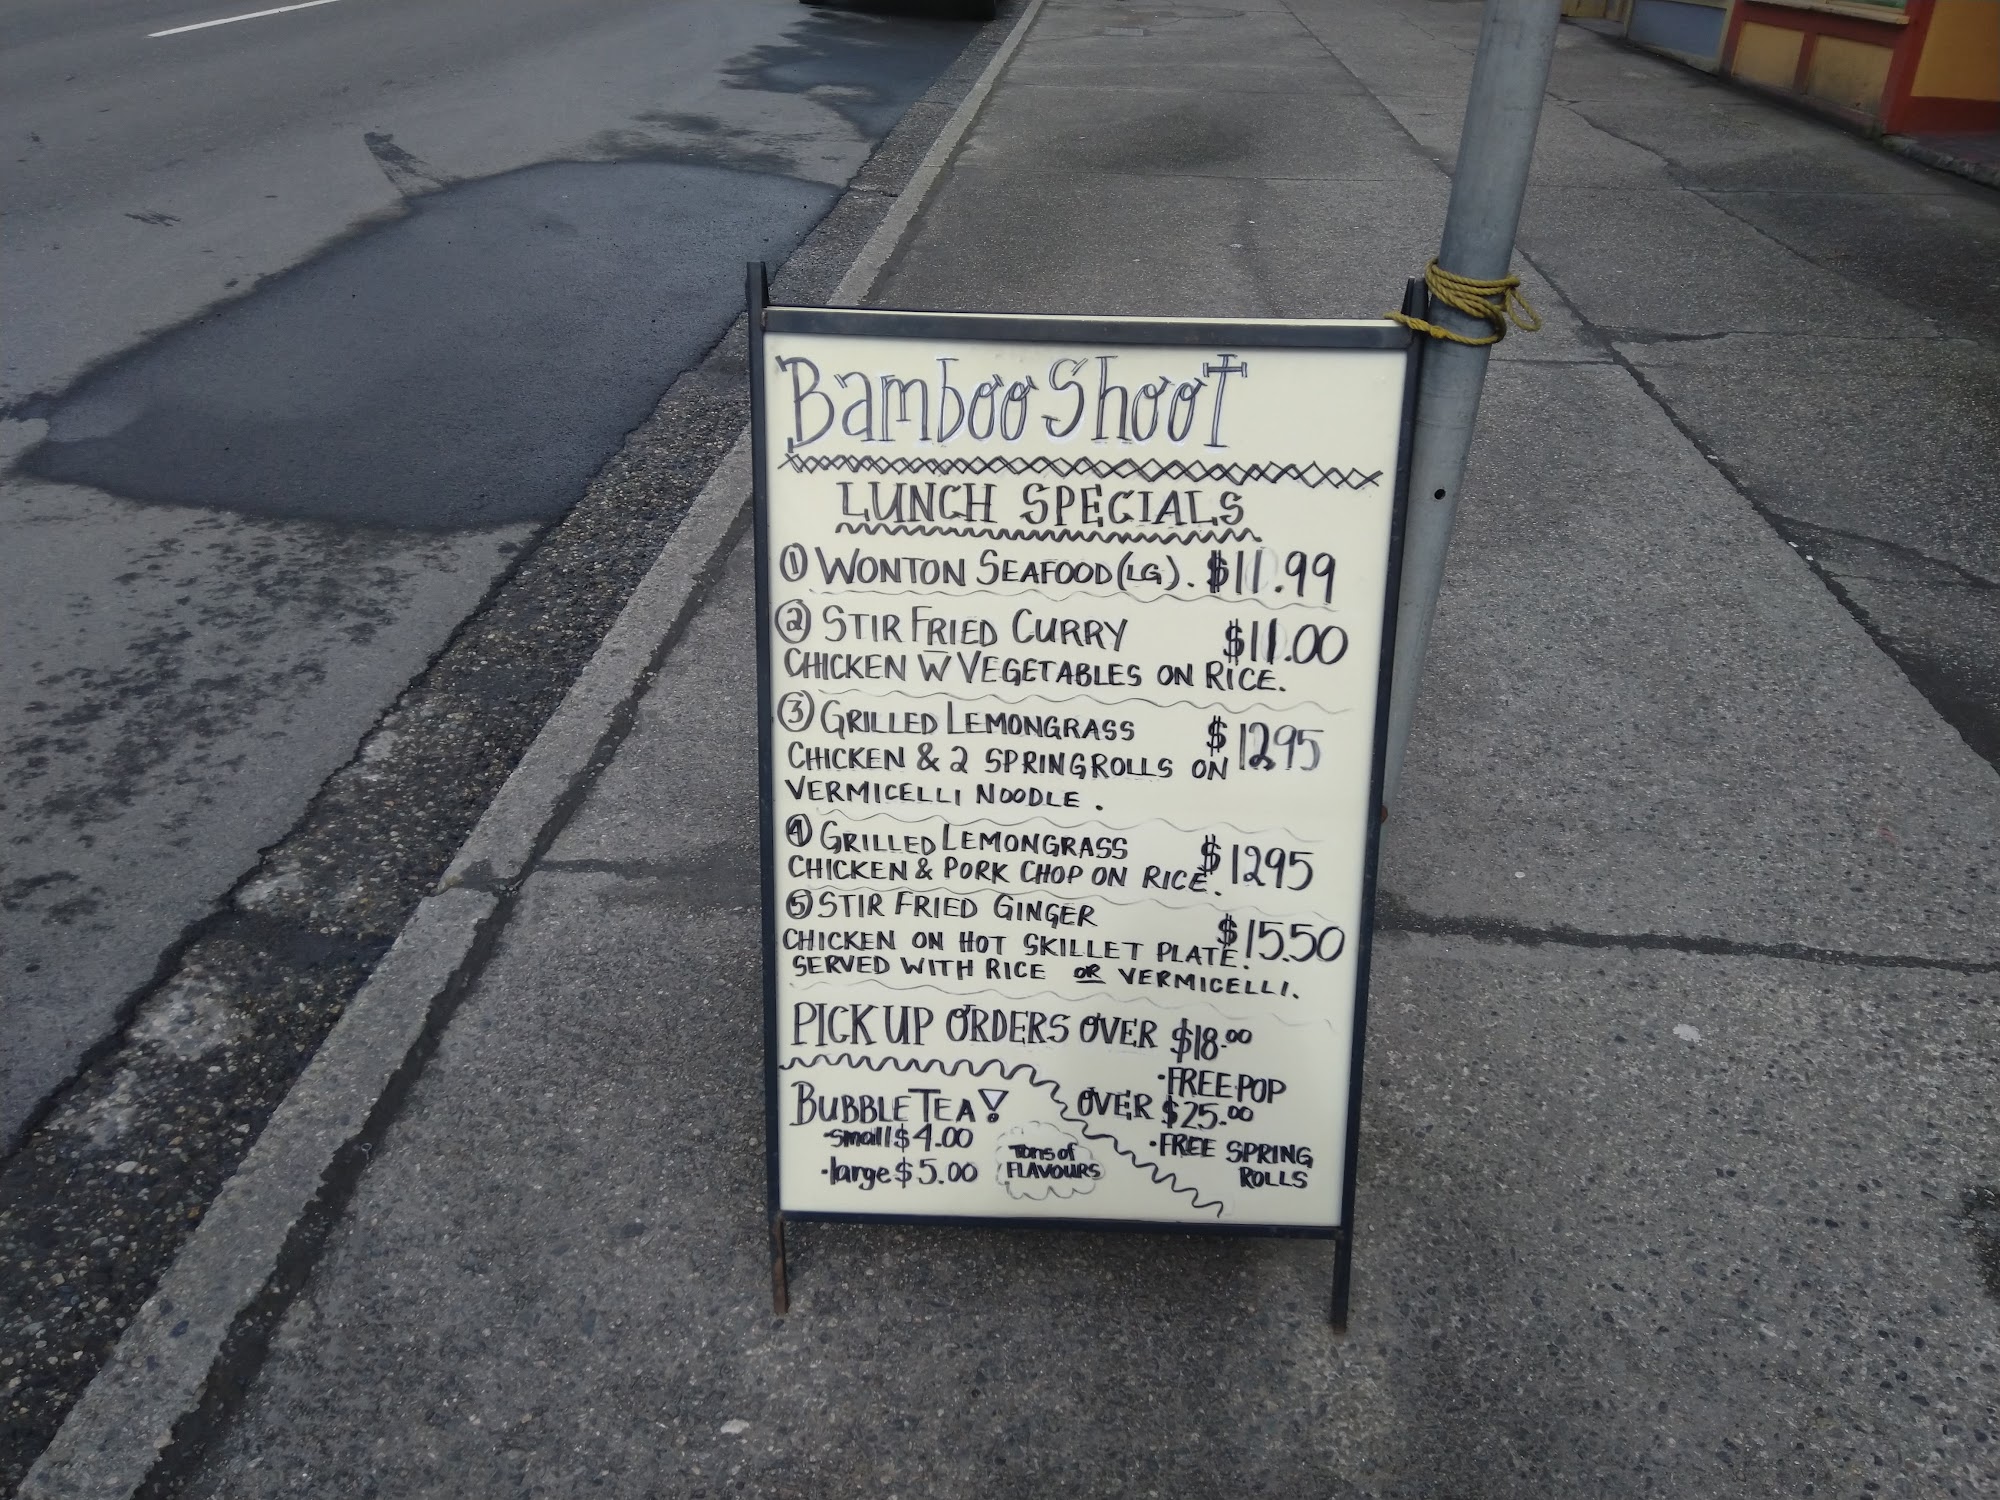 Bamboo Shoot
LUNCH SPECIALS
① WONTON SEAFOOD (LG). $11.99
② STIR FRIED CURRY $11.00
CHICKEN W̅ VEGETABLES ON RICE.
③ GRILLED LEMONGRASS $1295
CHICKEN & 2 SPRINGROLLS ON
VERMICELLI NOODLE.
④ GRILLED LEMONGRASS $1295
CHICKEN & PORK CHOP ON RICE.
⑤ STIR FRIED GINGER $15.50
CHICKEN ON HOT SKILLET PLATE.
SERVED WITH RICE OR VERMICELLI.
PICK UP ORDERS OVER $18.00
·FREE POP
OVER $25.00
·FREE SPRING
ROLLS
BUBBLE TEA!
·small $4.00
·large $5.00
Tons of
FLAVOURS